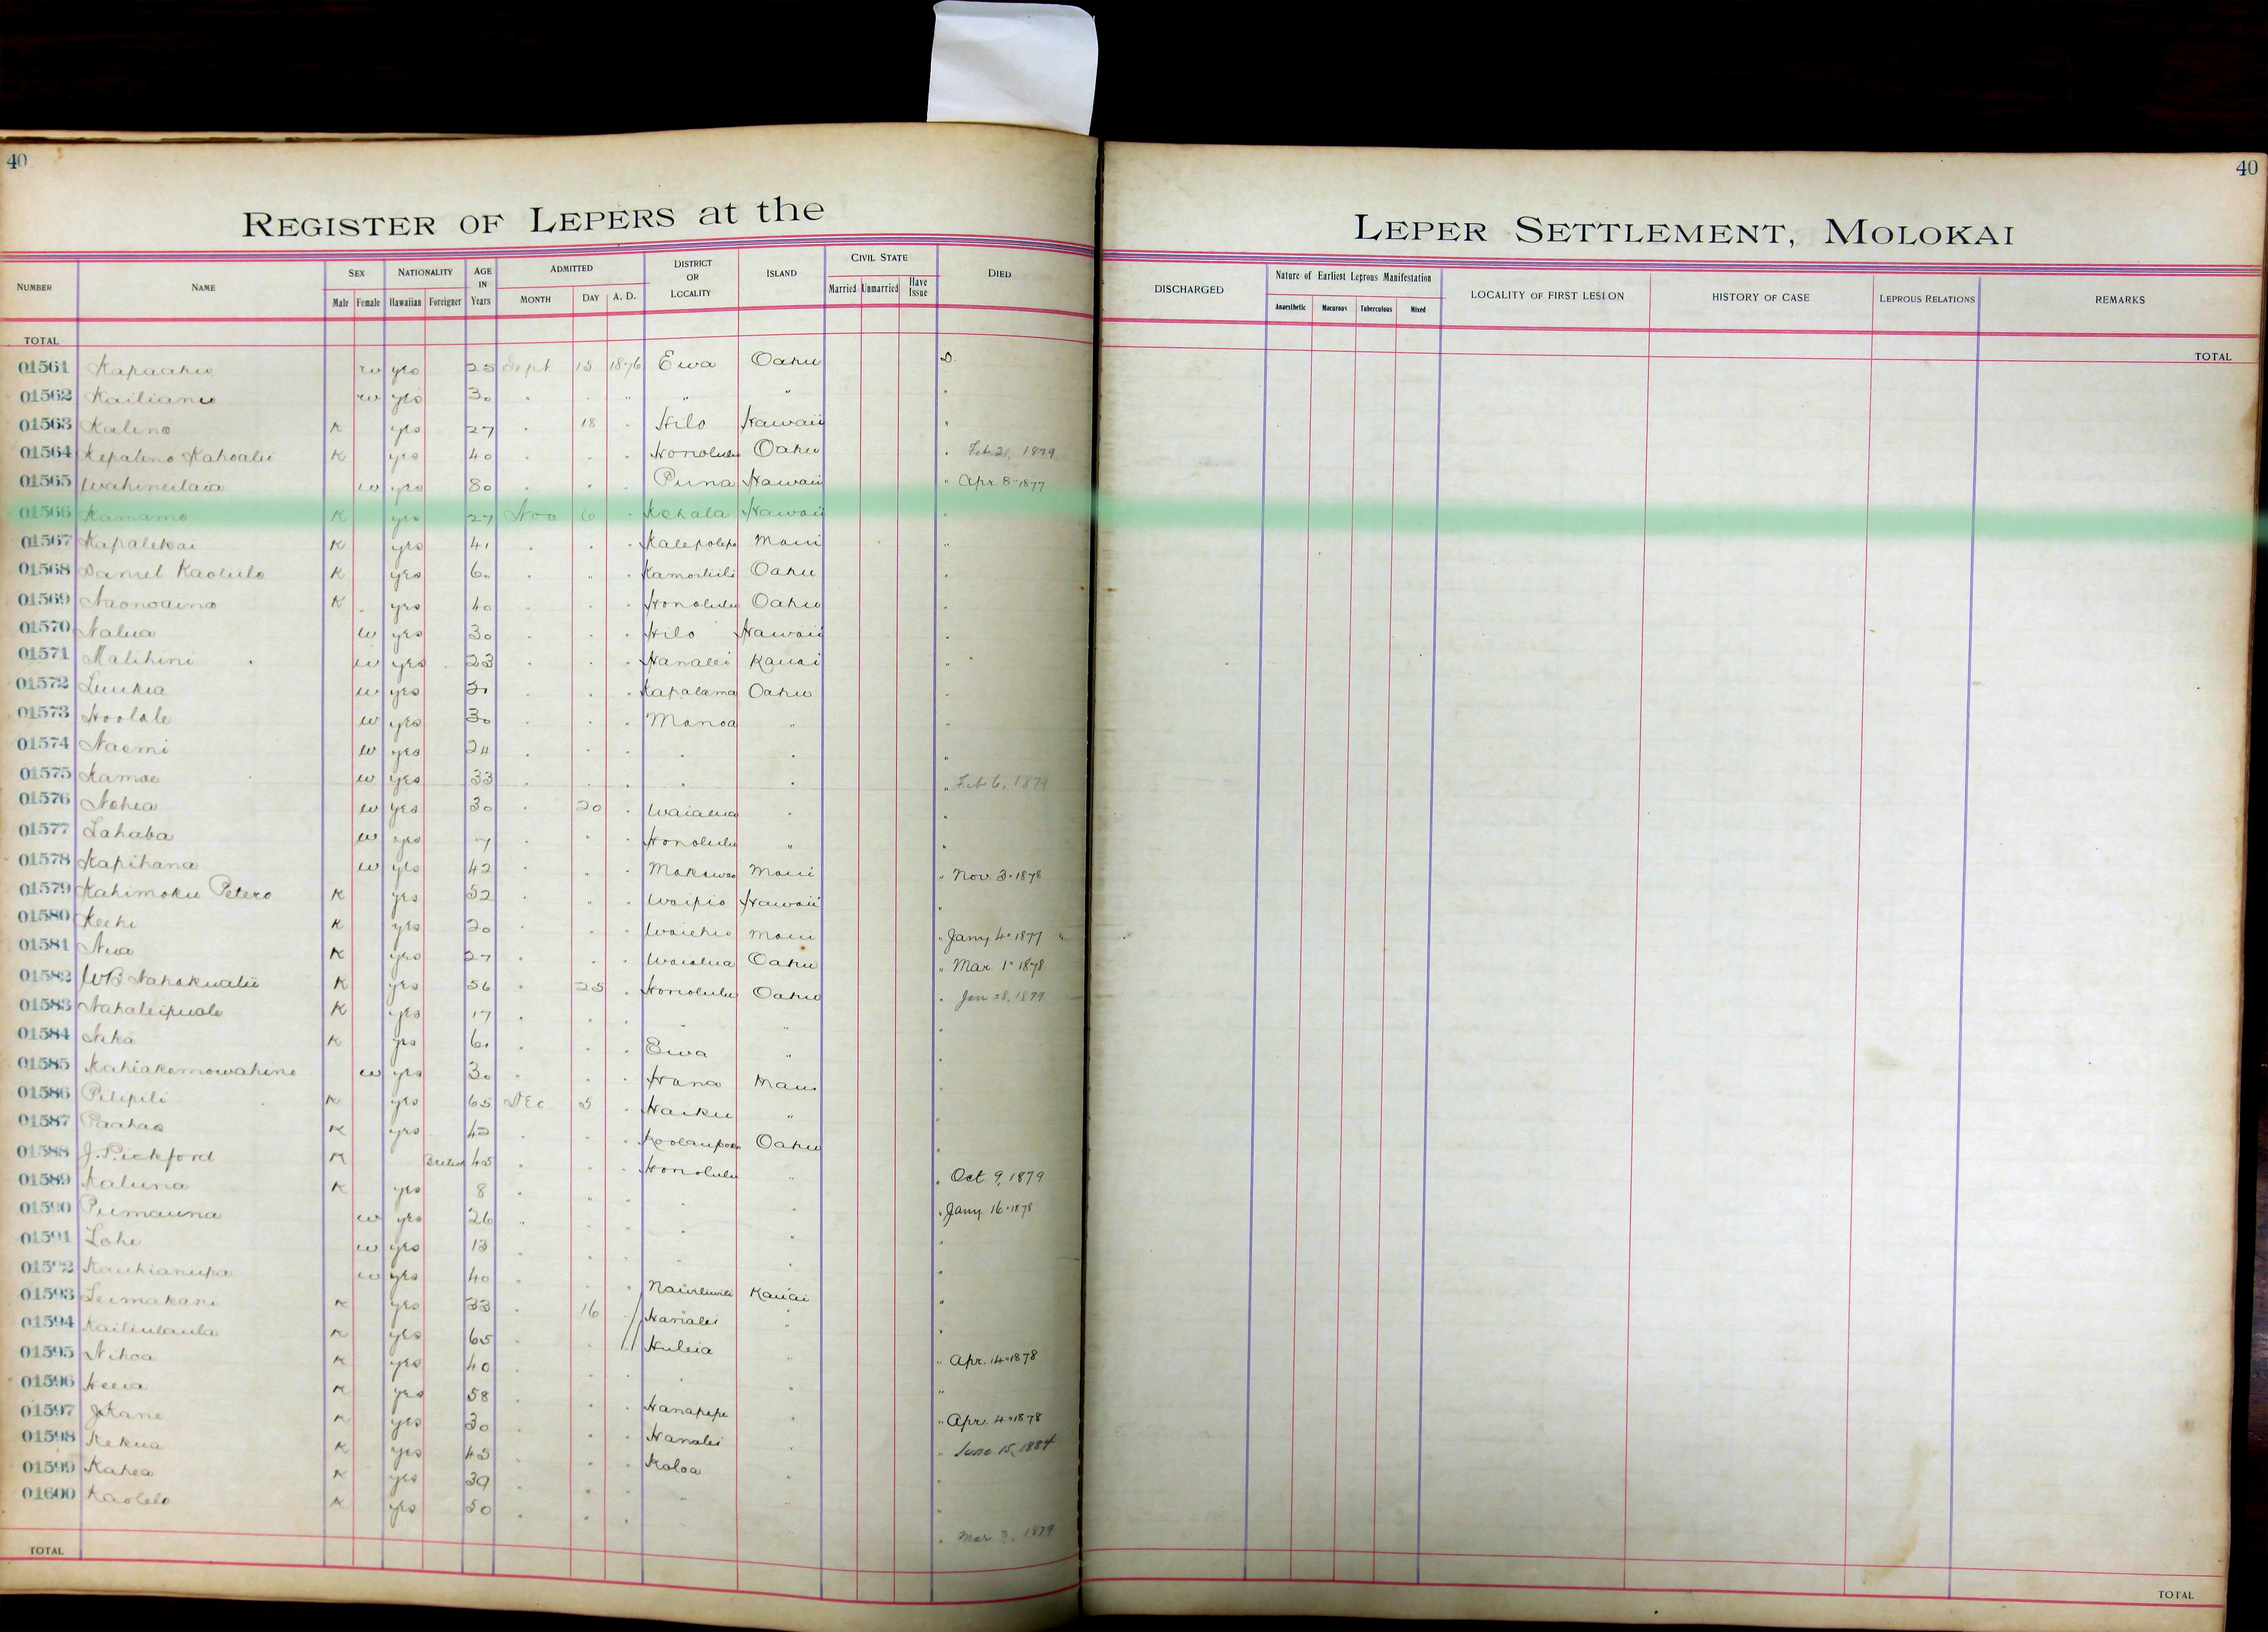 40
40
REGISTER OF LEPERS at the
LEPER SETTLEMENT, MOLOKAI
NUMBER NAME SEX NATIONALITY AGE IN Years ADMITTED DISTRICT OR LOCALITY ISLAND CIVIL STATE DIED
Male Female Hawaiian Foreigner MONTH DAY A. D. Married Unmarried Have Issue
DISCHARGED Nature of Earliest Leprous Manifestation LOCALITY OF FIRST LESION HISTORY OF CASE LEPROUS RELATIONS REMARKS
Anaesthetic Macurous Tuberculous Mixed
TOTAL
TOTAL
01561 Kapaahu w yes 25 Sept 15 1876 Ewa Oahu D.
01562 Kailianu w yes 30 " " " " " "
01563 Kalino K yes 27 " 18 " Hilo Hawaii "
01564 Kepalino Kahoalii K yes 40 " " " Honolulu Oahu " Feb 21, 1879
01565 Wahineilaia w yes 30 " " " Puna Hawaii " Apr. 8" 1877
01566 Kamamo K yes 27 Nov 6 " Kohala Hawaii "
01567 Kapalekai K yes 41 " " " Kalepolepo Maui "
01568 Daniel Kaolulo K yes 60 " " " Kamoiliili Oahu "
01569 Naonoaina K yes 40 " " " Honolulu Oahu "
01570 Nalua w yes 30 " " " Hilo Hawaii "
01571 Malihini w yes 23 " " " Hanalei Kauai "
01572 Luukia w yes " " " Kapalama Oahu "
01573 Hoolale w yes 30 " " " Manoa " "
01574 Naomi w yes 24 " " " " " "
01575 Kamae w yes 33 " " " " " " Feb 6, 1879
01576 Nohea w yes 30 " 20 " Waialua " "
01577 Lahaba w yes 7 " " Honolulu " "
01578 Kapihana w yes 42 " " " Makawao Maui " Nov. 3" 1878
01579 Kahimoku Petero K yes 52 " " " Waipio Hawaii "
01580 Keehi K yes 20 " " " Waiehu Maui " Jany 4" 1877
01581 Nua K yes 27 " " " Waialua Oahu " Mar. 1" 1878
01582 WB Nahokualii K yes 56 " 25 " Honolulu Oahu " Jan 28, 1879
01583 Nahaleipuole K yes 17 " " " " " "
01584 Nika K yes 61 " " " Ewa " "
01585 Kahiakemowahine w yes 30 " " " Hana Maui "
01586 Pilipili K yes 65 Dec 5 " Haiku " "
01587 Paahao K yes 42 " " " Koolaupoko Oahu "
01588 J. Pickford K British 45 " " " Honolulu " " Oct. 9, 1879
01589 Kaluna K yes 8 " " " " " " Jany. 16" 1878
01590 Puimauna w yes 26 " " " " " "
01591 Lohe w yes 13 " " " " "
01592 Kauhianupa w yes 40 " " " Nawiliwili Kauai "
01593 Leimakani K yes 33 " 16 Hanalei " "
01594 Kailiulaula K yes 65 " " Huleia " " Apr. 14" 1878
01595 Nihoa K yes 40 " " " " "
01596 Heeia K yes 58 " " " Hanapepe " " Apr. 4" 1878
01597 J Kane K yes 30 " " " Hanalei " " June 15, 1884
01598 Kekua K yes 45 " " " Koloa " "
01599 Kahea K yes 39 " " " "
01600 Kaolelo K yes 50 " " " " Mar 3, 1879
TOTAL
TOTAL